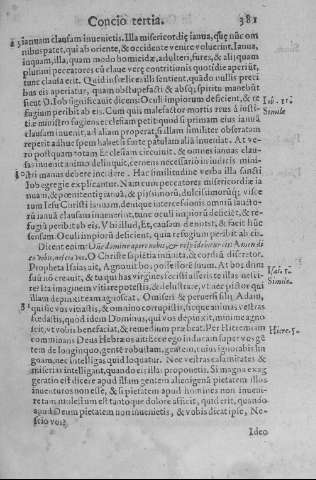 Concio tertia. 381
ianuam clausam inuenietis. Illa misericordię ianua, quę nũc om
nibus patet, qui ab oriente, & occidente venire voluerint. Ianua,
inquam, illa, quam modo homicidæ, adulteri, fures, & aliquam
plurimi peccatores cũ claue verę contritionis quotidie aperiũt,
tunc clausa erit. Quid infœlices illi sentient, quãdo nullis preci
bus eis aperiatur, quam obstupefacti & absq; spiritu manebũt
sicut D. Iob significauit dicens: Oculi impiorum deficient, & re
fugium peribit ab eis. Cum quis malefactor mortis reus à iusti-
tiæ ministro fugiens ecclesiam petit quod si primam eius ianuã
clausam inuenit, ad aliam properat, si illam similiter obseratam
reperit adhuc spem habet si forte patulam alia inueniat. At ve-
ro postquam totam Ecclesiam circuiuit, & omnes ianuas clau-
sas inuenit animo delinquit, cernens necessario in iudicis mini-
stri manus debere incidere. Hac similitudine verba illa sancti
Iob egregie explicantur. Nam cum peccatores misericordiæ ia
nuam, & pœnitentię ianuã, & piissimorũ, dulcissimorumq; visce
rum Iesu Christi ianuam, denique intercessionis omniũ sancto-
rũ ianuã clausam inuenerint, tunc oculi impiorũ deficiẽt, & re-
fugiũ peribit ab eis. Vbi illud, Et, causam denotat, & facit hũc
sensum Oculi impiorũ deficient, quia refugium peribit ab eis.
Dicent enim: Domine domine aperi nobis, & respõdebitur eis: Amen di
co vobis, nescio vos. O Christe sapiẽtia infinita, & cordiũ discretor.
Propheta Isaias ait, Agnouit bos possessorẽ suum. At bos dñm
suũ nõ creauit, & tu qui has virgines
re ita imaginem vitiare potestis, & delustrare, vt nec pictor qui
illam depinxit eam agnoscat. O miseri & peruersi filij Adam,
qui sic vos vitiastis, & omnino corrupistis, sicque animas vestras
fœdastis, quod idem Dominus, qui vos depinxit, minime agno-
scit, vt vobis benefaciat, & remedium præbeat. Per Hieremiam
comminans Deus Hebræos ait: Ecce ego inducam super vos gẽ
tem de longinquo, gentẽ robustam, gentem, cuius ignorabis lin
guam, nec intelliges quid loquatur. Nec vestras calamitates &
miserias intelligant, quando eis illas proponetis. Si magna exag
geratio est dicere apud illam gentem alienigenã pietatem illos
inuenturos non esse, & si pietatem apud homines non inueni-
re tam molestum est tantoque dolore afficit, quid erit, quando
apud Deum pietatem non inuenietis, & vobis dicat ipse, Ne-
scio vos?
Ideo
Simile
Isai. 1.
Simile.
Hiere. 5.